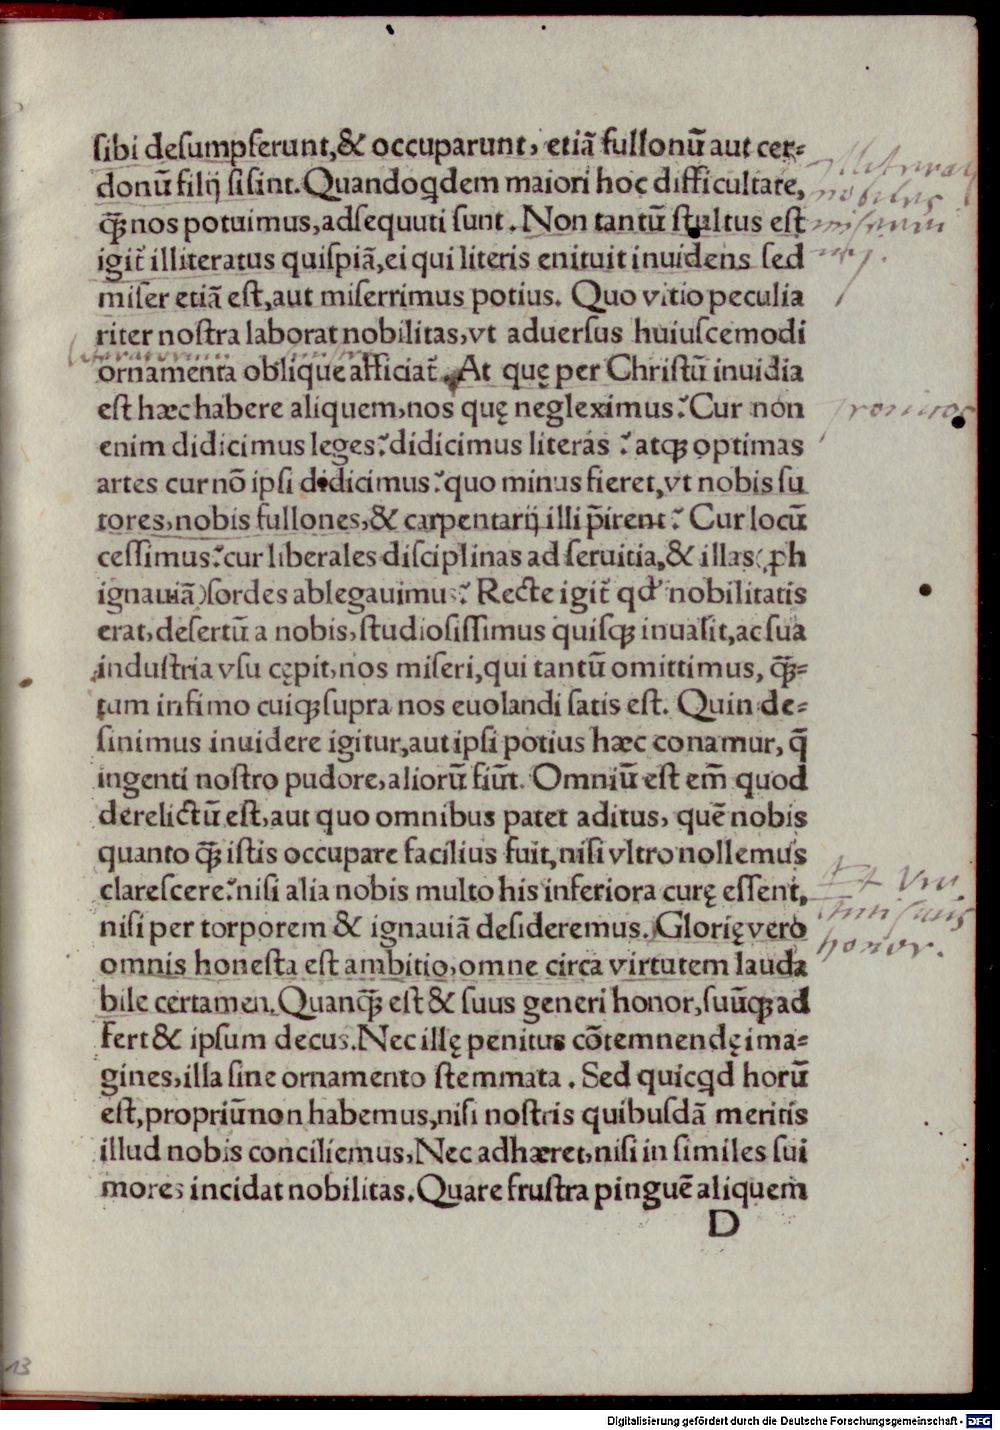 sibi desumpserunt,& occuparunt, etiã fullonũ aut cer-
donũ filij si sint. Quandoꝗdem maiori hoc difficultate,
q̃ꝫ nos potuimus, adsequuti sunt. Non tantũ stultus est
igit᷑ illiteratus quispiã, ei qui literis enituit inuidens sed
miser etiã est, aut miserrimus potius. Quo vitio peculia
riter nostra laborat nobilitas, vt aduersus huiuscemodi
ornamenta oblique afficiat᷑. At quę per Christũ inuidia
est hæc habere aliquem, nos quę negleximus? Cur non
enim didicimus leges? didicimus literas? atqꝫ optimas
artes cur nõ ipsi didicimus? quo minus fieret, vt nobis su
tores, nobis fullones, & carpentarij illi p̃irent? Cur locũ
cessimus? cur liberales disciplinas ad seruitia, & illas (ꝓh
ignauiã) sordes ablegauimus? Recte igit᷑ qđ nobilitatis
erat, desertũ a nobis, studiosissimus quisqꝫ inuasit, ac sua
industria vsu cępit, nos miseri, qui tantũ omittimus, q̃ꝫ-
tum infimo cuiqꝫ supra nos euolandi satis est. Quin de-
sinimus inuidere igitur, aut ipsi potius hæc conamur, q̃
ingenti nostro pudore, aliorũ fiũt. Omniũ est em̃ quod
derelictũ est, aut quo omnibus patet aditus, quẽ nobis
quanto q̃ꝫ istis occupare facilius fuit, nisi vltro nollemus
clarescere? nisi alia nobis multo his inferiora curę essent,
nisi per torporem & ignauiã desideremus. Glorię vero
omnis honesta est ambitio, omne circa virtutem lauda
bile certamen. Quanq̃ꝫ est & suus generi honor, suũqꝫ ad
fert & ipsum decus. Nec illę penitus cõtemnendę ima-
gines, illa sine ornamento stemmata. Sed quicꝗd horũ
est, propriũ non habemus, nisi nostris quibusdã meritis
illud nobis conciliemus, Nec adhæret, nisi in similes sui
mores incidat nobilitas. Quare frustra pinguẽ aliquem
D
nobiles
honor.
13
Digitalisierung gefördert durch die Deutsche Forschungsgemeinschaft - DFG